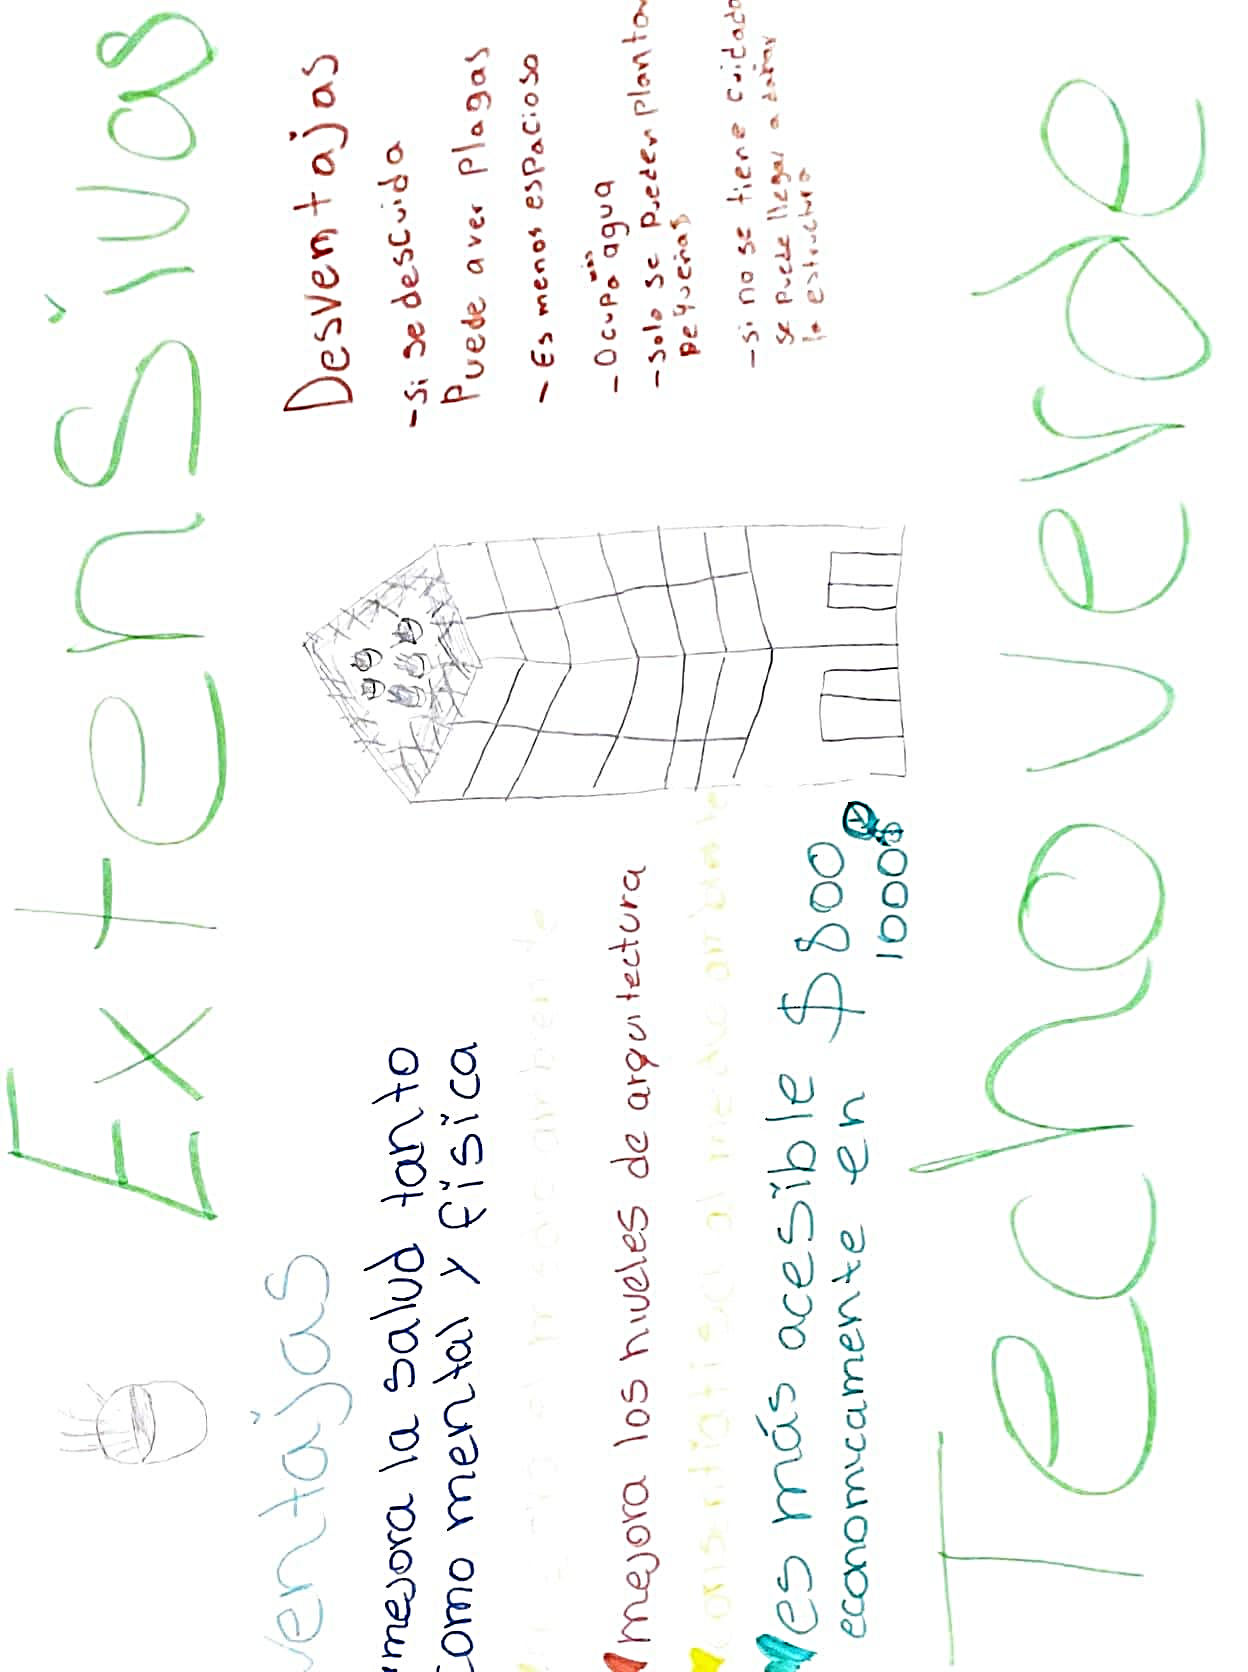 Extensivas
ventajas
mejora la salud tanto
como mental y física
medio ambiente
mejora los niveles de arquitectura
al medio ambiente
es más acesible $800
economicamente en 1000$
Desventajas
-si se descuida
Puede aver plagas
- Es menos espacioso
- Ocupa agua
- Solo se pueden
pequeñas
- si no se tiene cuidado
se puede llegar a dañar
la estructura
Techo verde